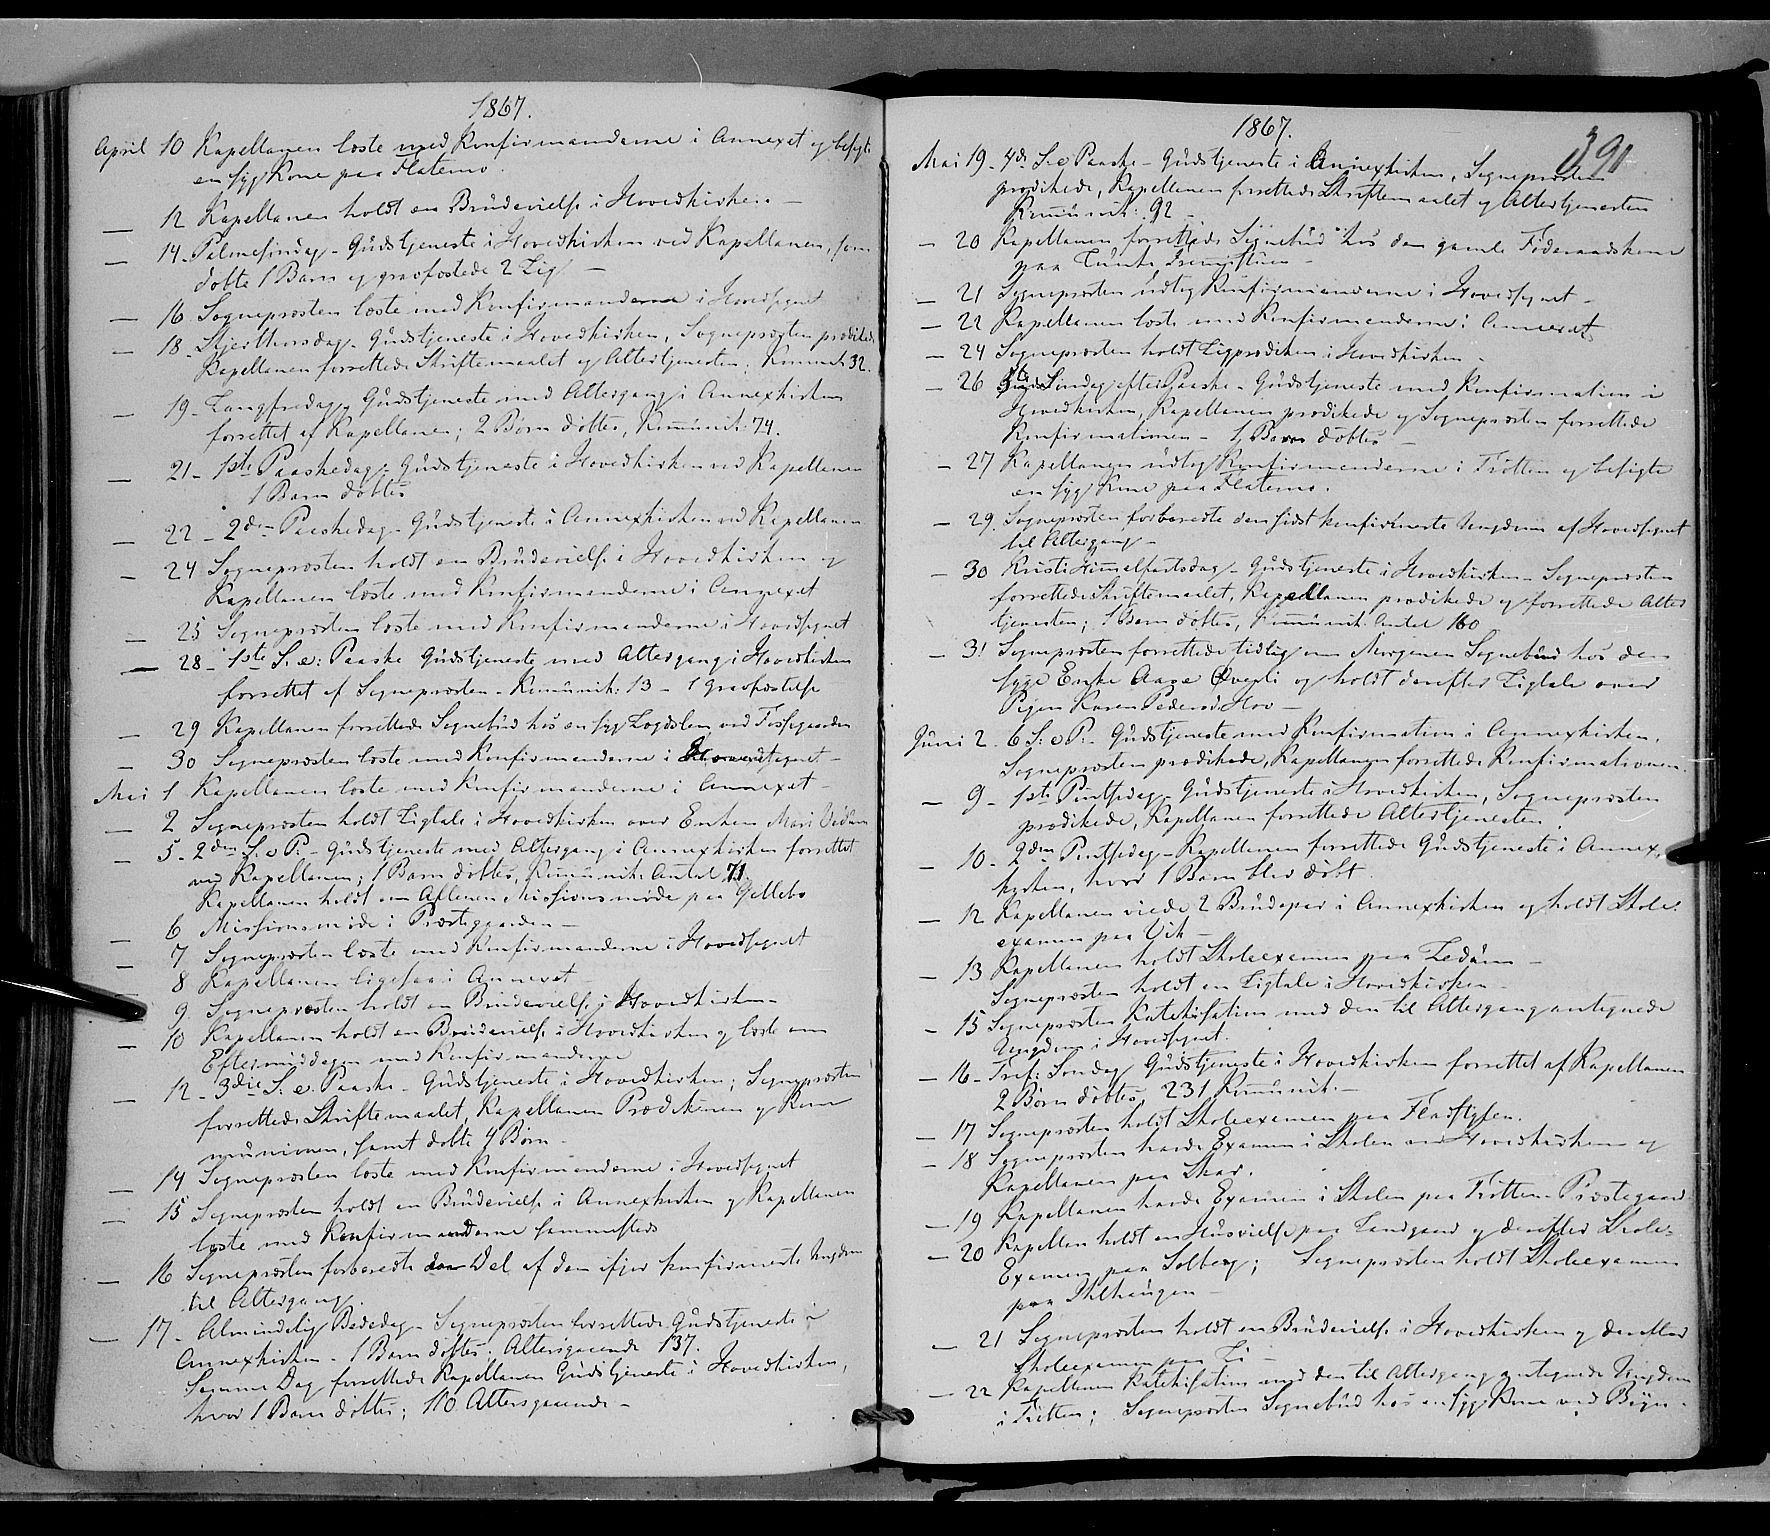 1867.
April 10 Kapellanen læste med Konfirmanderne i Annexet og besøgte
en syg Kone paa Flatemo.
— 12 Kapellanen holdt en Brudevielse i Hovedkirken. —
— 14. Palmesøndag – Gudstjeneste i Hovedkirken ved Kapellanen, som
døbte 1 Barn og gravfæstede 2 Lig —
— 16 Sognepræsten læste med Konfirmanderne i Hovedsognet
— 18. Skjærthorsdag. Gudstjeneste i Hovedkirken, Sognepræsten prædikede
Kapellanen forrettede Skriftemaalet og Altertjenesten; Kommunik. 32.
— 19 – Langfredag. Gudstjeneste med Altergang i Annexkirken
forrettet af Kapellanen; 2 Børn døbtes, Kommunik: 74.
— 21 – 1ste Paaskedag – Gudstjeneste i Hovedkirken ved Kapellanen
1 Barn døbtes
— 22 – 2den Paaskedag – Gudstjeneste i Annexkirken ved Kapellanen
— 24 Sognepræsten holdt en Brudevielse i Hovedkirken og
Kapellanen læste med Konfirmanderne i Annexet
— 25 Sognepræsten læste med Konfirmanderne i Hovedsognet
— 28 – 1ste S. e: Paaske Gudstjeneste med Altergang i Hovedkirken
forrettet af Sognepræsten – Kommunik: 13 – 1 Gravfæstelse
— 29 Kapellanen forrettede Sognebud hos en syg Lægdslem ved Fossegaarden
— 30 Sognepræsten læste med Konfirmanderne i Hovedsognet –
Mai 1 Kapellanen læste med Konfirmanderne i Annexet –
— 2 Sognepræsten holdt Ligtale i Hovedkirken over Enken Mari
— 5 – 2den S. e P. – Gudstjeneste med Altergang i Annexkirken forrettet
ved Kapellanen; 1 Barn døbtes, Kommunik: Antal 71.
Kapellanen holdt om Aftenen Missionsmøde paa
— 6 Missionsmøde i Præstegaarden —
— 7 Sognepræsten læste med Konfirmanderne i Hovedsognet
— 8 Kapellanen ligesaa i Annexet
— 9 Sognepræsten holdt en Brudevielse i Hovedkirken –
— 10 Kapellanen holdt en Brudevielse i Hovedkirken og læste om
Eftermiddagen med Konfirmanderne
— 12 – 3die S. e. Paaske – Gudstjeneste i Hovedkirken; Sognepræsten
forrettede Skriftemaalet, Kapellanen Prædikenen og Kom
munionen, samt døbte 4 Børn –
— 14 Sognepræsten læste med Konfirmanderne i Hovedsognet
— 15 Sognepræsten holdt en Brudevielse i Annexkirken og Kapellanen
læste med Konfirmanderne sammesteds
— 16 Sognepræsten forberedte en Del af den ifjor konfirmerte Ungdom
til Altergang.
— 17 – Almindelig Bededag – Sognepræsten forrettede Gudstjeneste i
Annexkirken – 1 Barn døbtes. Altergaaende 137.
Samme Dag forrettede Kapellanen Gudstjeneste i Hovedkirken,
hvor 1 Barn døbtes; 110 Altersgaaende –
1867.
391
Mai 19 – 4de S. e Paaske – Gudstjeneste i Annexkirken, Sognepræsten
prædikede, Kapellanen forrettede Skriftemaalet og Altertjenesten
Kommunik: 92 –
— 20 Kapellanen forrettede Sognebud hos den gamle Føderaadskone
paa
— 21 Sognepræsten udtog Konfirmanderne i Hovedsognet –
— 22 Kapellanen læste med Konfirmanderne i Annexet
— 24 Sognepræsten holdt Ligprædiken i Hovedkirken –
— 26 5te Søndag efter Paaske – Gudstjeneste med Konfirmation i
Hovedkirken, Kapellanen prædikede og Sognepræsten forrettede
Konfirmationen – 1 Barn døbtes –
— 27 Kapellanen udtog Konfirmanderne i Trøtten og besøgte
en syg Kone paa Flatemo.
— 29. Sognepræsten forberedte den sidst konfirmerte Ungdom af Hovedsognet
til Altergang –
— 30 Kristi Himmelfartsdag – Gudstjeneste i Hovedkirken – Sognepræsten
forrettede Skriftemaalet, Kapellanen prædikede og forrettede Alter
tjenesten; 1 Barn døbtes, Kommunik: Antal 160
— 31 Sognepræsten forrettede tidlig om Morgenen Sognebud hos den
syge Enke Aase Øverli og holdt derefter Ligtale over
Pigen Karen Pedersd Hov —
Juni 2. 6 S: e P. – Gudstjeneste med Konfirmation i Annexkirken.
Sognepræsten prædikede, Kapellanen forrettede Konfirmationen.
— 9 – 1ste Pintsedag – Gudstjeneste i Hovedkirken, Sognepræsten
prædikede, Kapellanen forrettede Altertjenesten.
— 10 – 2den Pintsedag – Kapellanen forrettede Gudstjeneste i Annex,
kirken, hvor 1 Barn blev døbt.
— 12 Kapellanen viede 2 Brudepar i Annexkirken og holdt Skole-
examen paa Vik –
— 13 Kapellanen holdt Skoleexamen paa —
Sognepræsten holdt en Ligtale i Hovedkirken –
— 15 Sognepræsten Katekisation med den til Altergang antegnede
Ungdom i Hovedsognet.
— 16 – Tref: Søndag Gudstjeneste i Hovedkirken forrettet af Kapellanen
2 Børn døbtes, 231 Kommunik. —
— 17 Sognepræsten holdt Skoleexamen paa
— 18 Sognepræsten havde Examen i Skolen ved Hovedkirken og
Kapellanen paa Skar.
— 19 Kapellanen havde Examen i Skolen paa Trøtten Præstegaard
— 20 Kapellan holdt en Husvielse paa Landgaard og derefter Skole-
Examen paa Solberg; Sognepræsten holdt Skoleexamen
paa —
— 21 Sognepræsten holdt en Brudevielse i Hovedkirken og derefter
Skoleexamen paa Li –
— 22 Kapellanen Katekisation med den til Altergang antegnede Ungdom
i Trøtten; Sognepræsten Sognebud hos en syg Kone ved